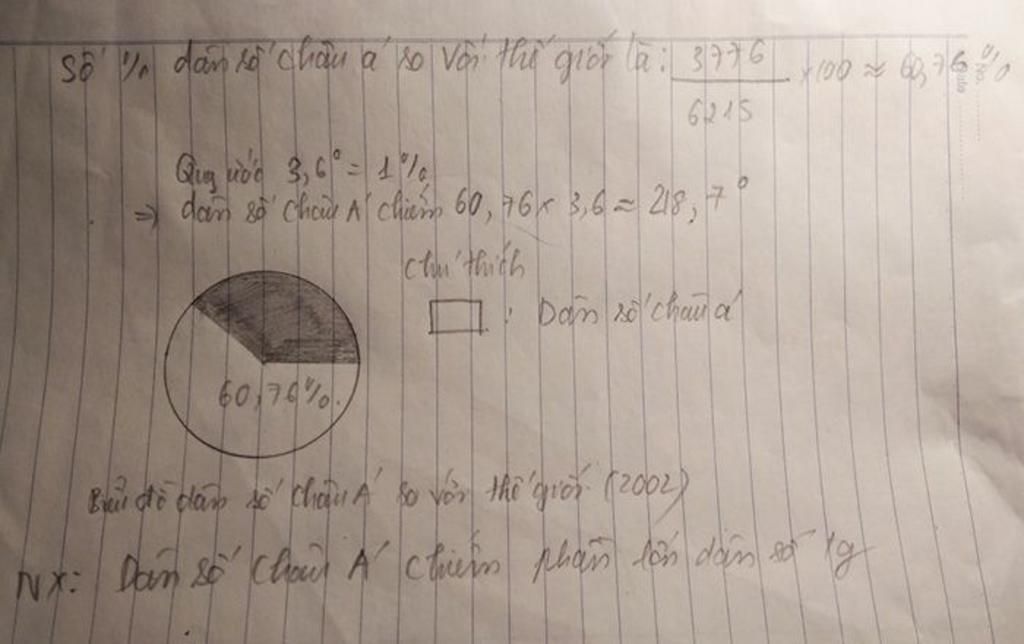 Số % dân số châu á so với thế giới là: 3776 / 6215 × 100 ≈ 60,76 %
Quy ước 3,6° = 1%
=> dân số châu Á chiếm 60,76 × 3,6 ≈ 218,7°
Chú thích
: Dân số châu á
60,76%.
Biểu đồ dân số châu Á so với thế giới (2002)
NX: Dân số châu Á chiếm phần lớn dân số tg